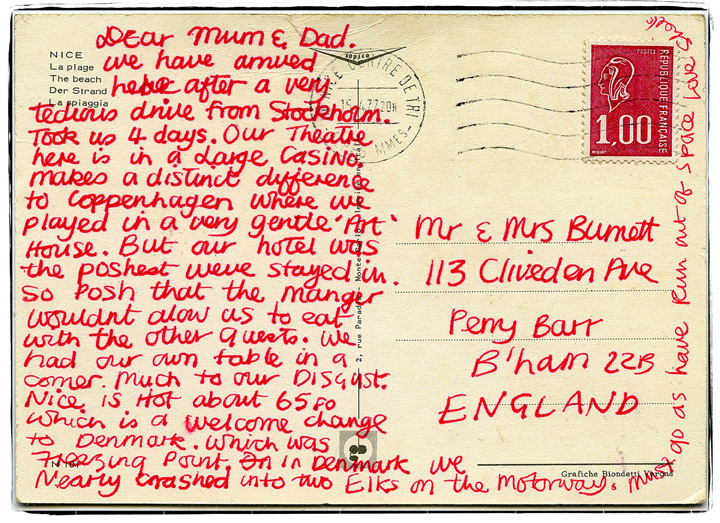 NICE
La plage
The beach
Der Strand
La spiaggia
Dear Mum & Dad.
we have arrived
here after a very
tedious drive from Stockholm.
Took us 4 days. Our Theatre
here is in a Large Casino.
makes a distinct difference
to Coppenhagen where we
played in a very gentle 'Art'
House. But our hotel was
the poshest weve stayed in.
So Posh that the manger
wouldnt alow us to eat
with the other guests. we
had our own table in a
corner. Much to our Disgust.
Nice is Hot about 65 Fo
which is a welcome change
to Denmark. which was
Freezing Point. In Denmark we
Nearly crashed into two Elks on the Motorway.
must go as have Run out of space Love
sopico
NICE CENTRE DE TRI
77 20H
MMES
POSTES
REPUBLIQUE FRANÇAISE
1,00
Mr & Mrs Burnett
113 Cliveden Ave
Perry Barr
B'ham 22B
ENGLAND
2, rue Paradis - Monte
Grafiche Biondetti Verona